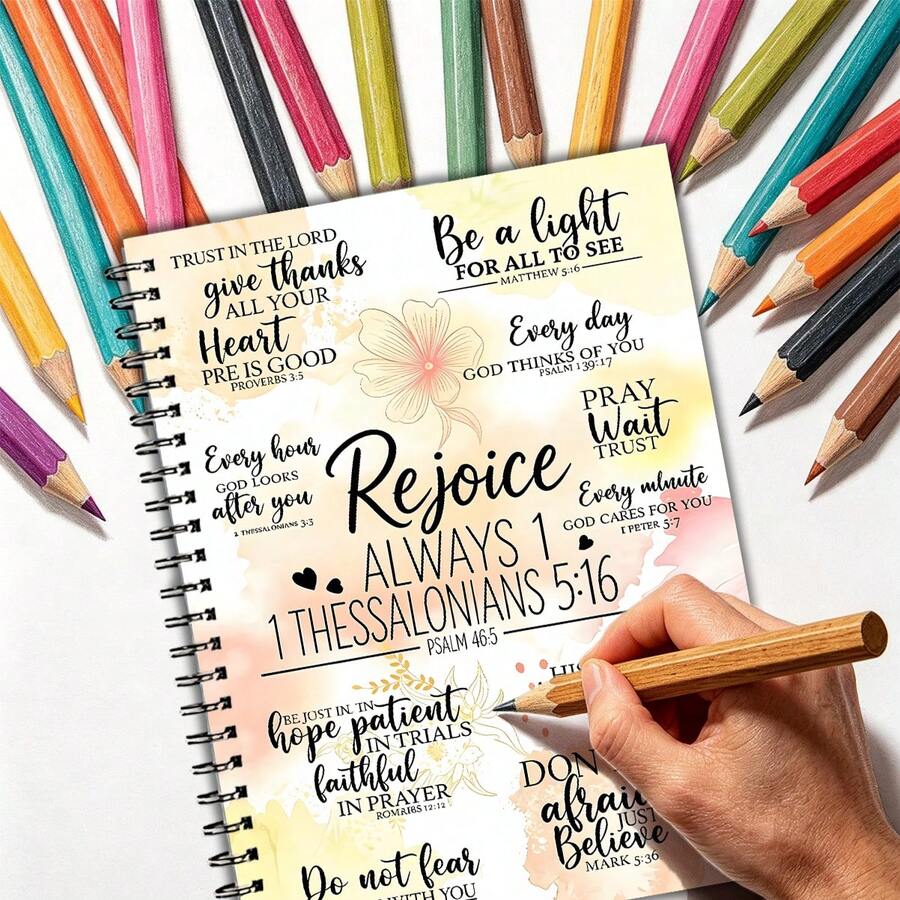 TRUST IN THE LORD
give thanks
ALL YOUR
Heart
PRE IS GOOD
PROVERBS 3:5
Be a light
FOR ALL TO SEE
MATTHEW 5:16
Every day
GOD THINKS OF YOU
PSALM 139:17
PRAY
Wait
TRUST
Every hour
GOD LOOKS
after you
2 THESSALONIANS 3:3
Every minute
GOD CARES FOR YOU
1 PETER 5:7
Rejoice
ALWAYS 1
1 THESSALONIANS 5:16
PSALM 46:5
HIS
BE JUST IN, TN
hope patient
IN TRIALS
faithful
IN PRAYER
12:12
DON
afrai
JUST
Believe
MARK 5:36
Do not fear
WITH YOU